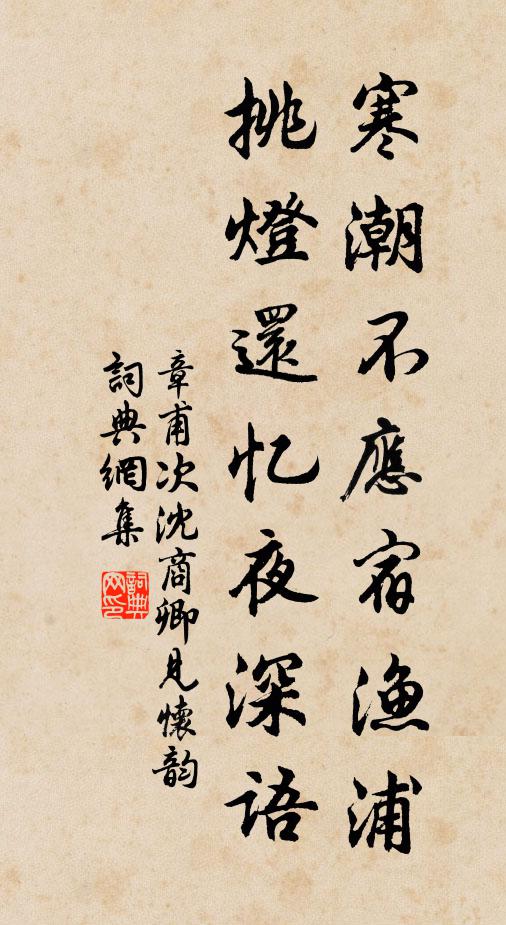 寒潮不應宿漁浦
挑燈還忆夜深語
章甫次沈商卿見懷韵
詞典網集
詞典网印